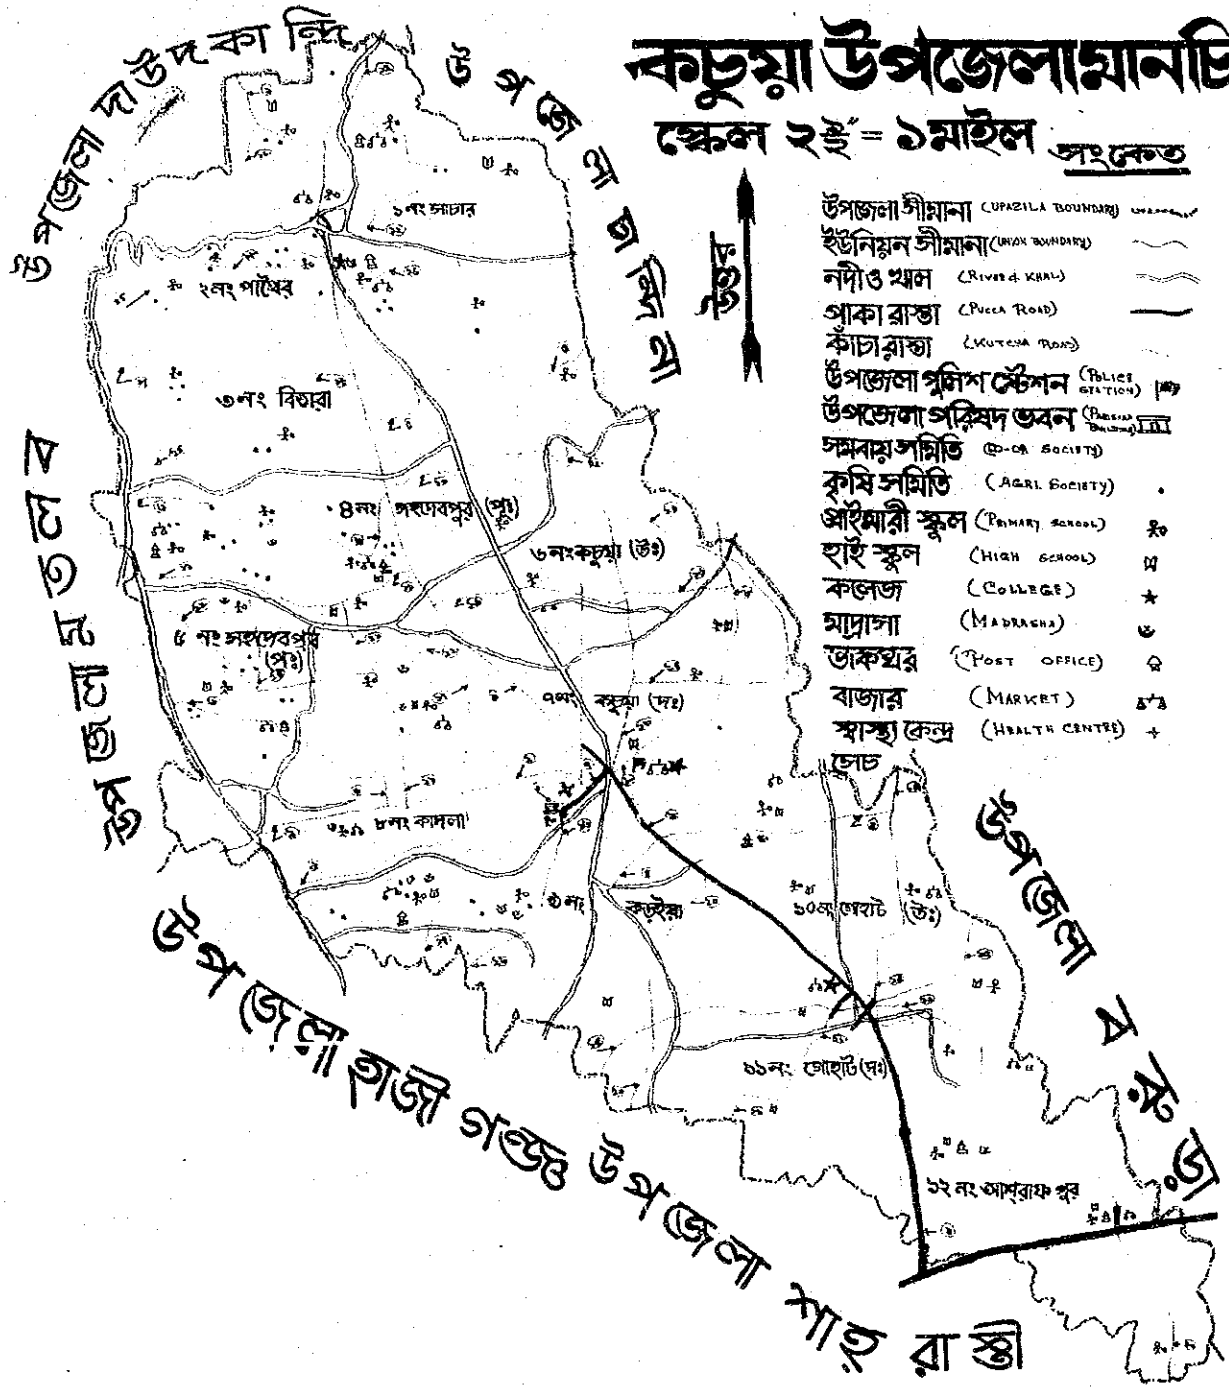 কচুয়া উপজেলা মানচি
স্কেল ২ ২/২" = ১ মাইল
সংকেত
উপজেলা সীমানা (UPAZILA BOUNDARY)
ইউনিয়ন সীমানা (UNION BOUNDARY)
নদী ও খাল (RIVER & KHAL)
পাকা রাস্তা (PUCCA ROAD)
কাঁচা রাস্তা (KUTCHA ROAD)
উপজেলা পুলিশ স্টেশন (POLICE STATION)
উপজেলা পরিষদ ভবন
সমবায় সমিতি (CO-OP SOCIETY)
কৃষি সমিতি (AGRI. SOCIETY)
প্রাইমারী স্কুল (PRIMARY SCHOOL)
হাই স্কুল (HIGH SCHOOL)
কলেজ (COLLEGE)
মাদ্রাসা (MADRASHA)
ডাকঘর (POST OFFICE)
বাজার (MARKET)
স্বাস্থ্য কেন্দ্র (HEALTH CENTRE)
সেচ
উত্তর
উপজেলা দাউদকান্দি
উপজেলা চান্দিনা
উপজেলা মতলব
উপজেলা বরুড়া
উপজেলা হাজীগঞ্জ
উপজেলা শাহরাস্তী
১নং সাচার
২নং পাথৈর
৩নং বিতারা
৪নং সহদেবপুর (পূঃ)
৫ নং সহদেবপুর (পঃ)
৬নং কচুয়া (উঃ)
৭নং কচুয়া (দঃ)
৮নং কাদলা
৯নং কড়ইয়া
১০নং গোহাট (উঃ)
১১নং গোহাট (দঃ)
১২ নং আশ্রাফপুর